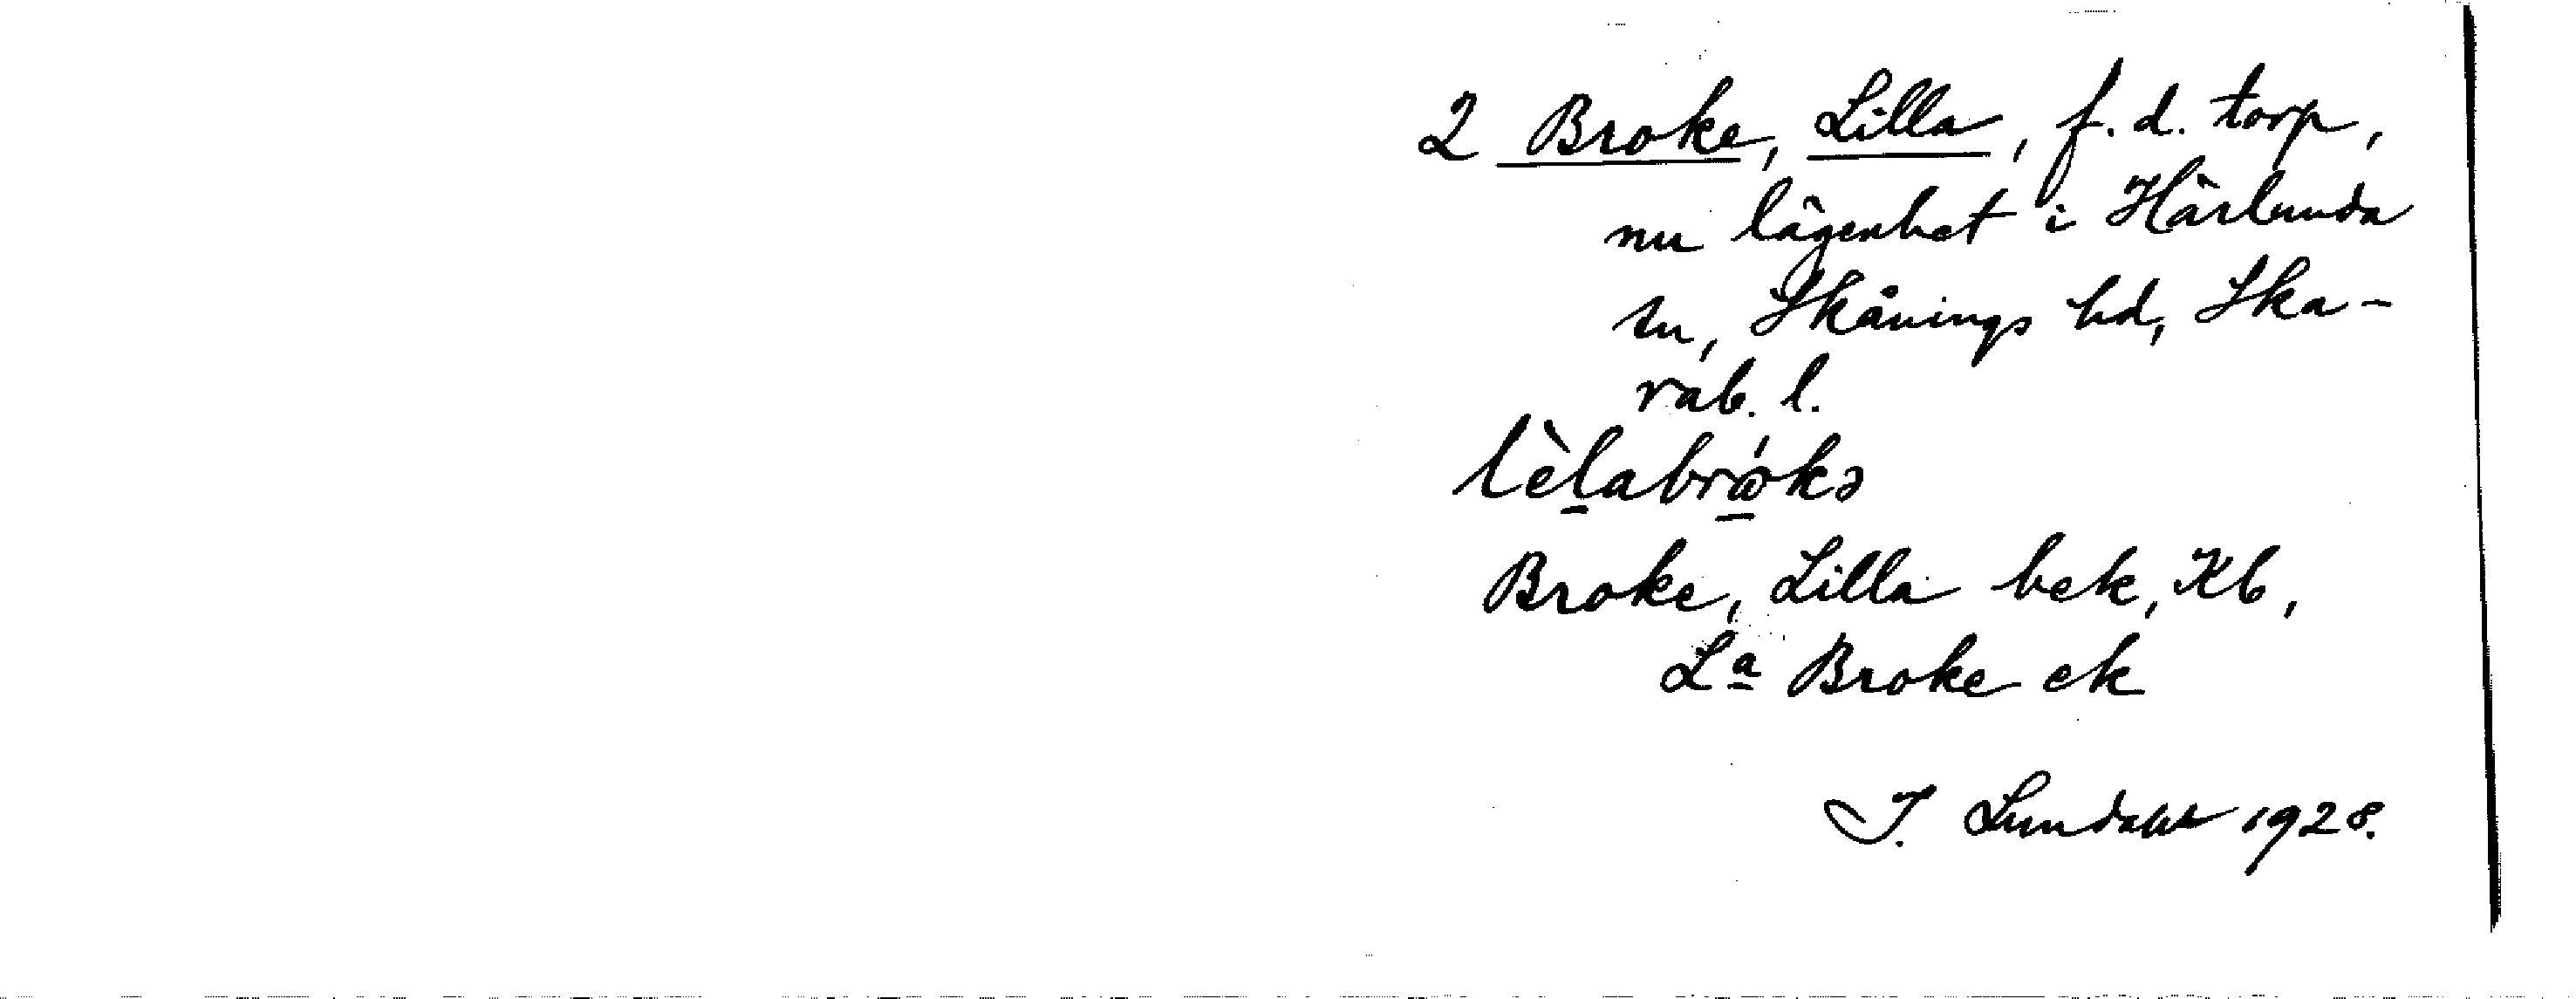 2 Broke, Lilla, f.d. torp,
nu lägenhet i Härlunda
sn, Skånings hd, Ska-
rab. l.
lèlabrǿkə
Broke, Lilla bek, Kb,
Lª Broke ek
I. Lundahl 1928.